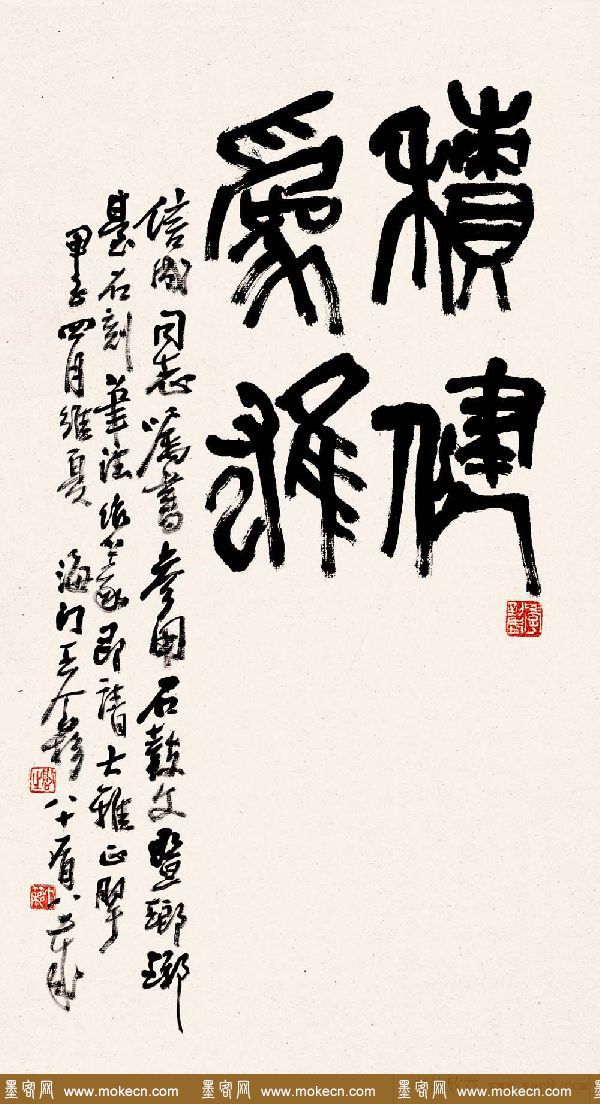 積健
為雄
信成同志屬書參用石鼓文暨瑯琊
臺石刻筆法作篆即請大雅正擘
甲子四月維夏 海门王个簃 八十有八歲
墨客网 www.mokecn.com 墨客网 www.mokecn.com 墨客网 www.mokecn.com